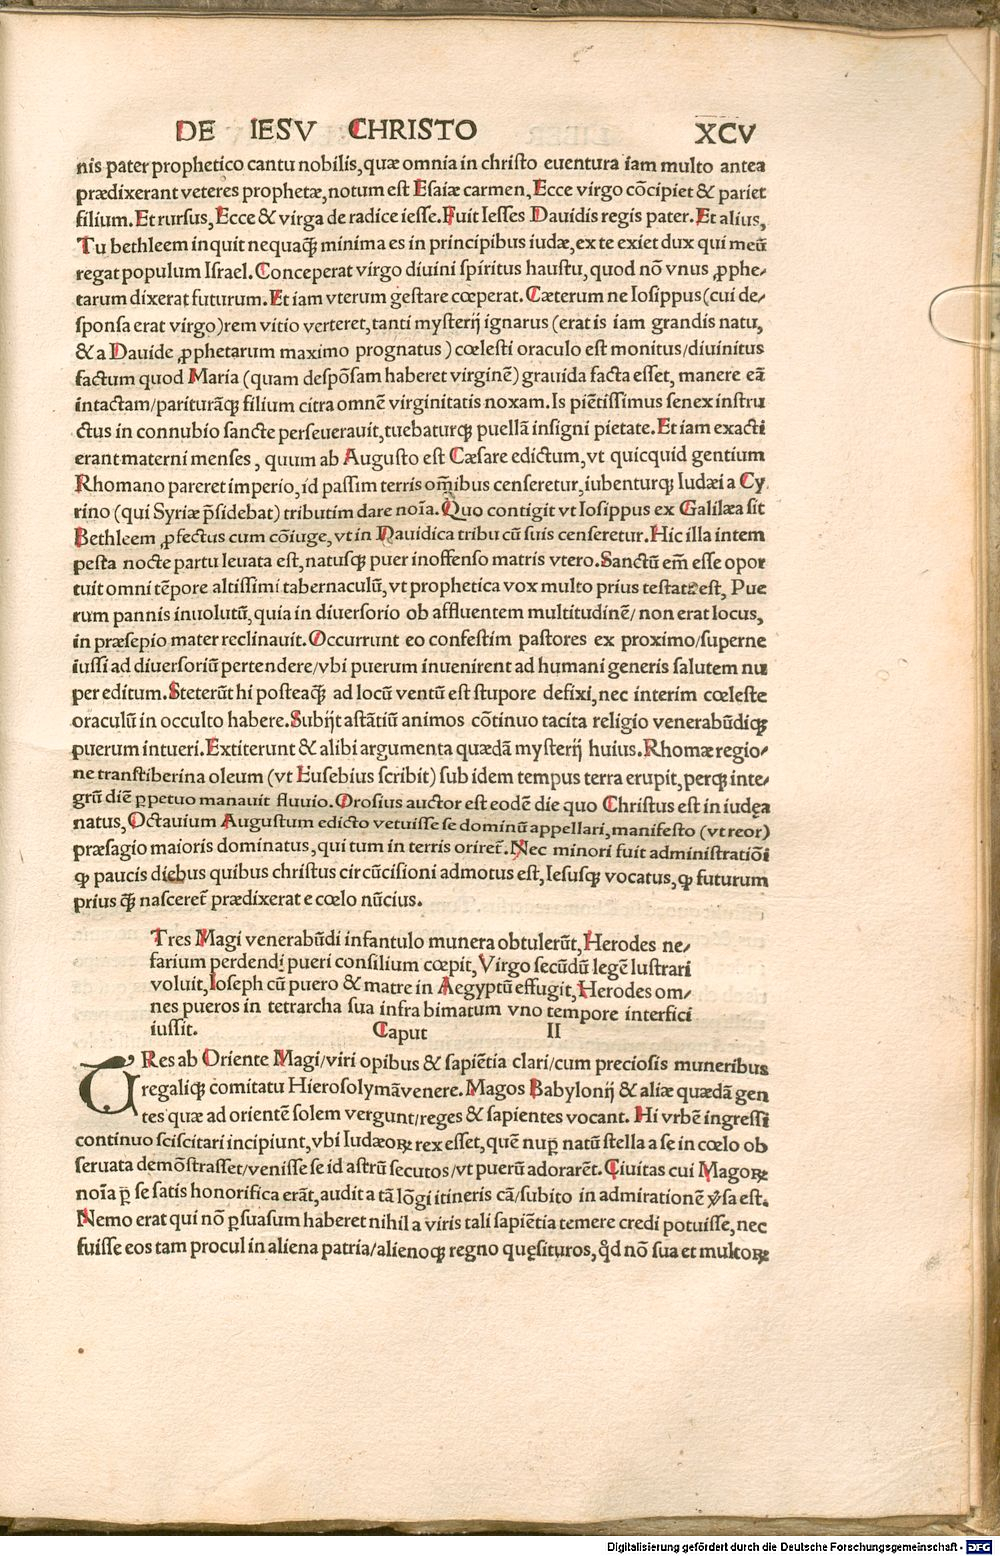 DE IESV CHRISTO XCV
nis pater prophetico cantu nobilis, quæ omnia in christo euentura iam multo antea
prædixerant veteres prophetæ, notum est Esaiæ carmen, Ecce virgo cōcipiet & pariet
filium. Et rursus, Ecce & virga de radice iesse. Fuit Iesses Dauidis regis pater. Et alius,
Tu bethleem inquit nequaꝗ̃ minima es in principibus iudæ, ex te exiet dux qui meū
regat populum Israel. Conceperat virgo diuini spiritus haustu, quod nō vnus ꝓphe/
tarum dixerat futurum. Et iam vterum gestare cœperat. Cæterum ne Iosippus (cui de/
sponsa erat virgo) rem vitio verteret, tanti mysterij ignarus (erat is iam grandis natu,
& a Dauide ꝓphetarum maximo prognatus) cœlesti oraculo est monitus/diuinitus
factum quod Maria (quam despōsam haberet virginē) grauida facta esset, manere eā
intactam/parituráꝗ filium citra omnē virginitatis noxam. Is piētissimus senex instru
ctus in connubio sancte perseuerauit, tuebaturꝗ puellā insigni pietate. Et iam exacti
erant materni menses, quum ab Augusto est Cæsare edictum, vt quicquid gentium
Rhomano pareret imperio, id passim terris om̄ibus censeretur, iubenturꝗ Iudæi a Cy
rino (qui Syriæ p̄sidebat) tributim dare noīa. Quo contigit vt Iosippus ex Galilæa sit
Bethleem ꝓfectus cum cōiuge, vt in Dauidica tribu cū suis censeretur. Hic illa intem
pesta nocte partu leuata est, natusꝗ puer inoffenso matris vtero. Sanctū em̄ esse opor
tuit omni tēpore altissimi tabernaculū, vt prophetica vox multo prius testata est, Pue
rum pannis inuolutū, quia in diuersorio ob affluentem multitudinē/ non erat locus,
in præsepio mater reclinauit. Occurrunt eo confestim pastores ex proximo/superne
iussi ad diuersoriū pertendere/vbi puerum inuenirent ad humani generis salutem nu
per editum. Steterūt hi posteaꝗ̃ ad locū ventū est stupore defixi, nec interim cœleste
oraculū in occulto habere. Subijt astātiū animos cōtinuo tacita religio venerabūdiꝗ
puerum intueri. Extiterunt & alibi argumenta quædā mysterij huius. Rhomæ regio/
ne transtiberina oleum (vt Eusebius scribit) sub idem tempus terra erupit, perꝗ inte/
grū diē ꝑpetuo manauit fluuio. Orosius auctor est eodē die quo Christus est in iudęa
natus, Octauium Augustum edicto vetuisse se dominū appellari, manifesto (vt reor)
præsagio maioris dominatus, qui tum in terris oriret̄. Nec minori fuit administratiōi
ꝙ paucis diebus quibus christus circūcisioni admotus est, Iesusꝗ vocatus, ꝙ futurum
prius ꝗ̃ nasceret̄ prædixerat e cœlo nūcius.
Tres Magi venerabūdi infantulo munera obtulerūt, Herodes ne/
farium perdendi pueri consilium cœpit, Virgo secūdū legē lustrari
voluit, Ioseph cū puero & matre in Aegyptū effugit, Herodes om/
nes pueros in tetrarcha sua infra bimatum vno tempore interfici
iussit. Caput II
TRes ab Oriente Magi/viri opibus & sapiētia clari/cum preciosis muneribus
regaliꝗ comitatu Hierosolymā venere. Magos Babylonij & aliæ quædā gen
tes quæ ad orientē solem vergunt/reges & sapientes vocant. Hi vrbē ingressi
continuo sciscitari incipiunt, vbi Iudæoꝝ rex esset, quē nuꝑ natū stella a se in cœlo ob
seruata demōstrasset/venisse se id astrū secutos/vt puerū adorarēt. Ciuitas cui Magoꝝ
noīa ꝑ se satis honorifica erāt, audita tā lōgi itineris cā/subito in admirationē ꝟsa est.
Nemo erat qui nō ꝑsuasum haberet nihil a viris tali sapiētia temere credi potuisse, nec
fuisse eos tam procul in aliena patria/alienoꝗ regno quęsituros, ꝗd nō sua et multoꝝ
Digitalisierung gefördert durch die Deutsche Forschungsgemeinschaft - DFG